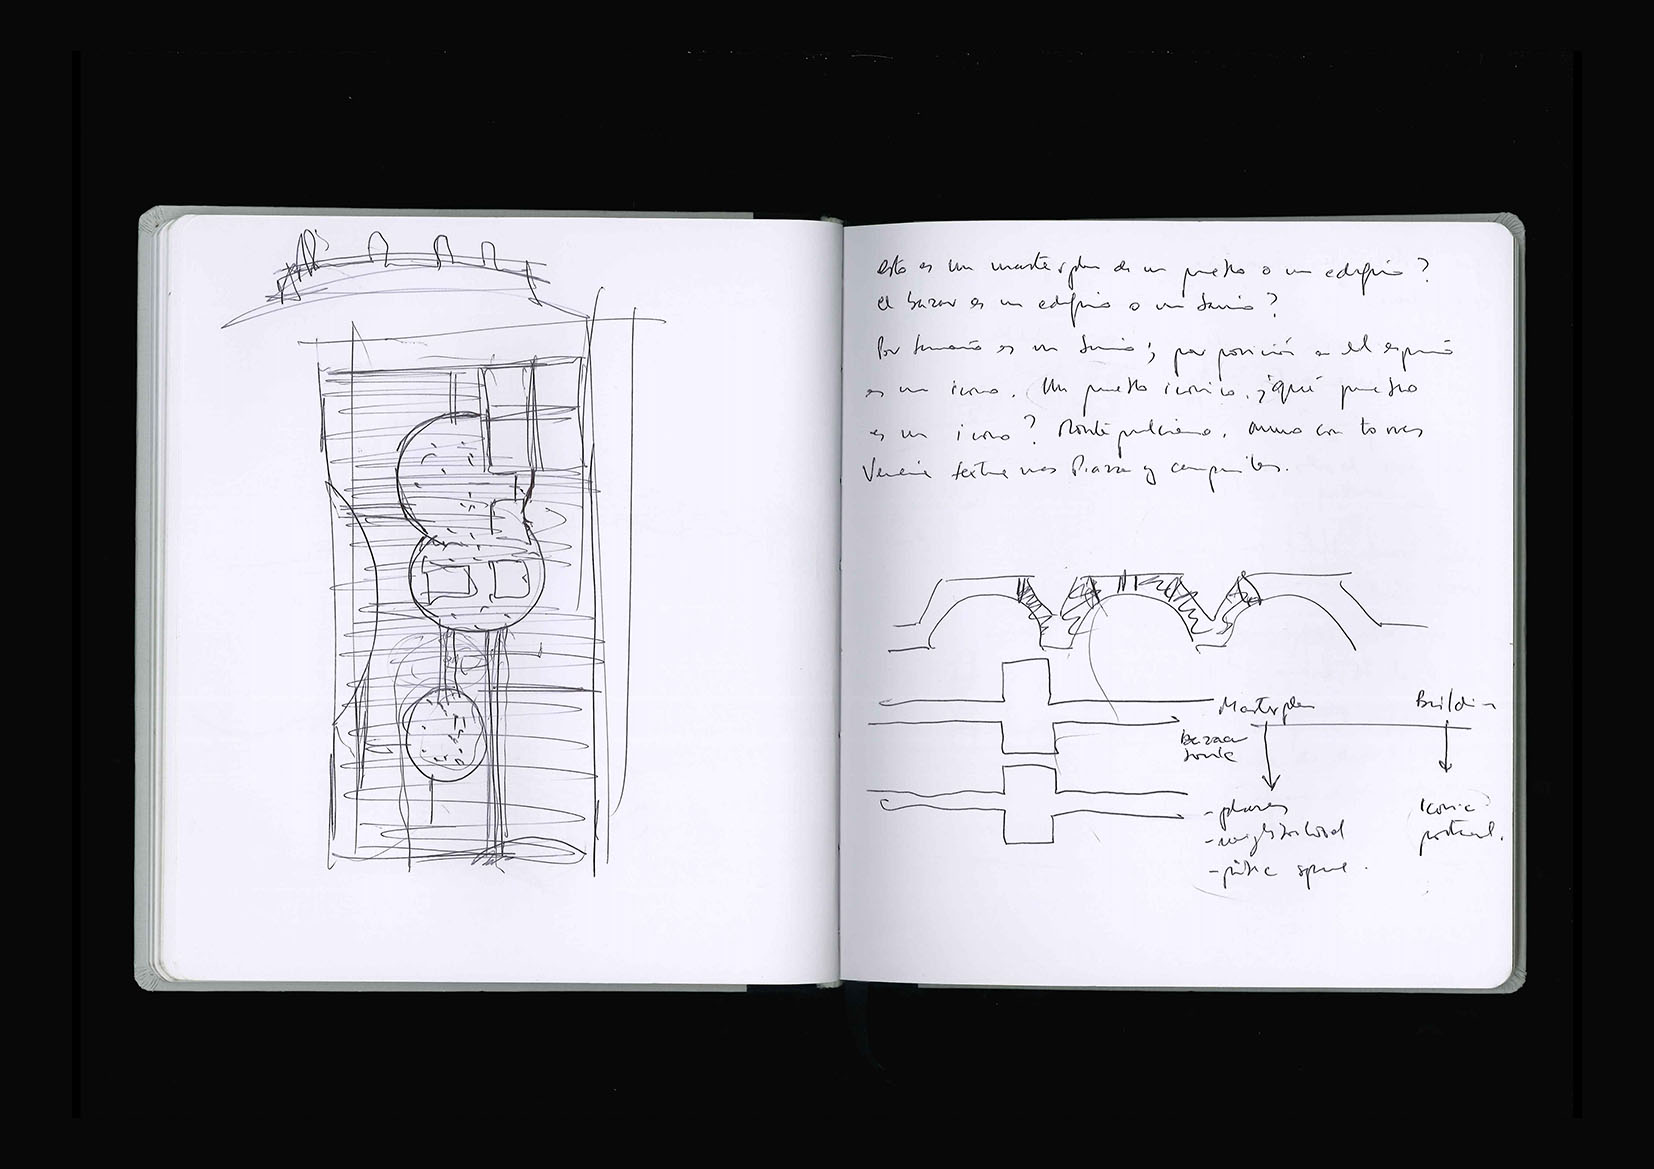 esto es un masterplan de un pueblo o un edificio?
el bazar es un edificio o un barrio?
Por tamaño es un barrio; por posición en el espacio
es un icono. Un pueblo icónico, ¿qué pueblo
es un icono? Montepulciano, muro con torres
Venecia textura más Piazza y campaniles.
Masterplan
Building
bazaar
souk
- plazas
- neighborhood
- public space.
Iconic
postcard.